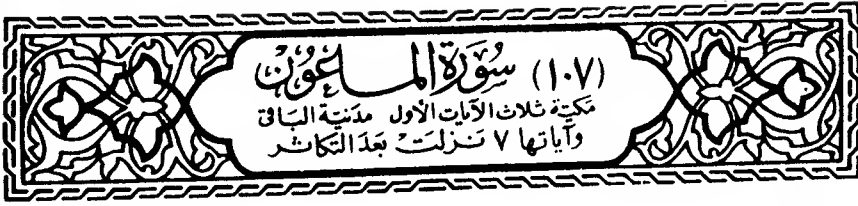 (١٠٧) سُورَةُ المَاعُون
مَكيّة ثلاث الآيات الأول مدَنية البَاقى
وآياتها ٧ نزلت بَعدَ التكاثر